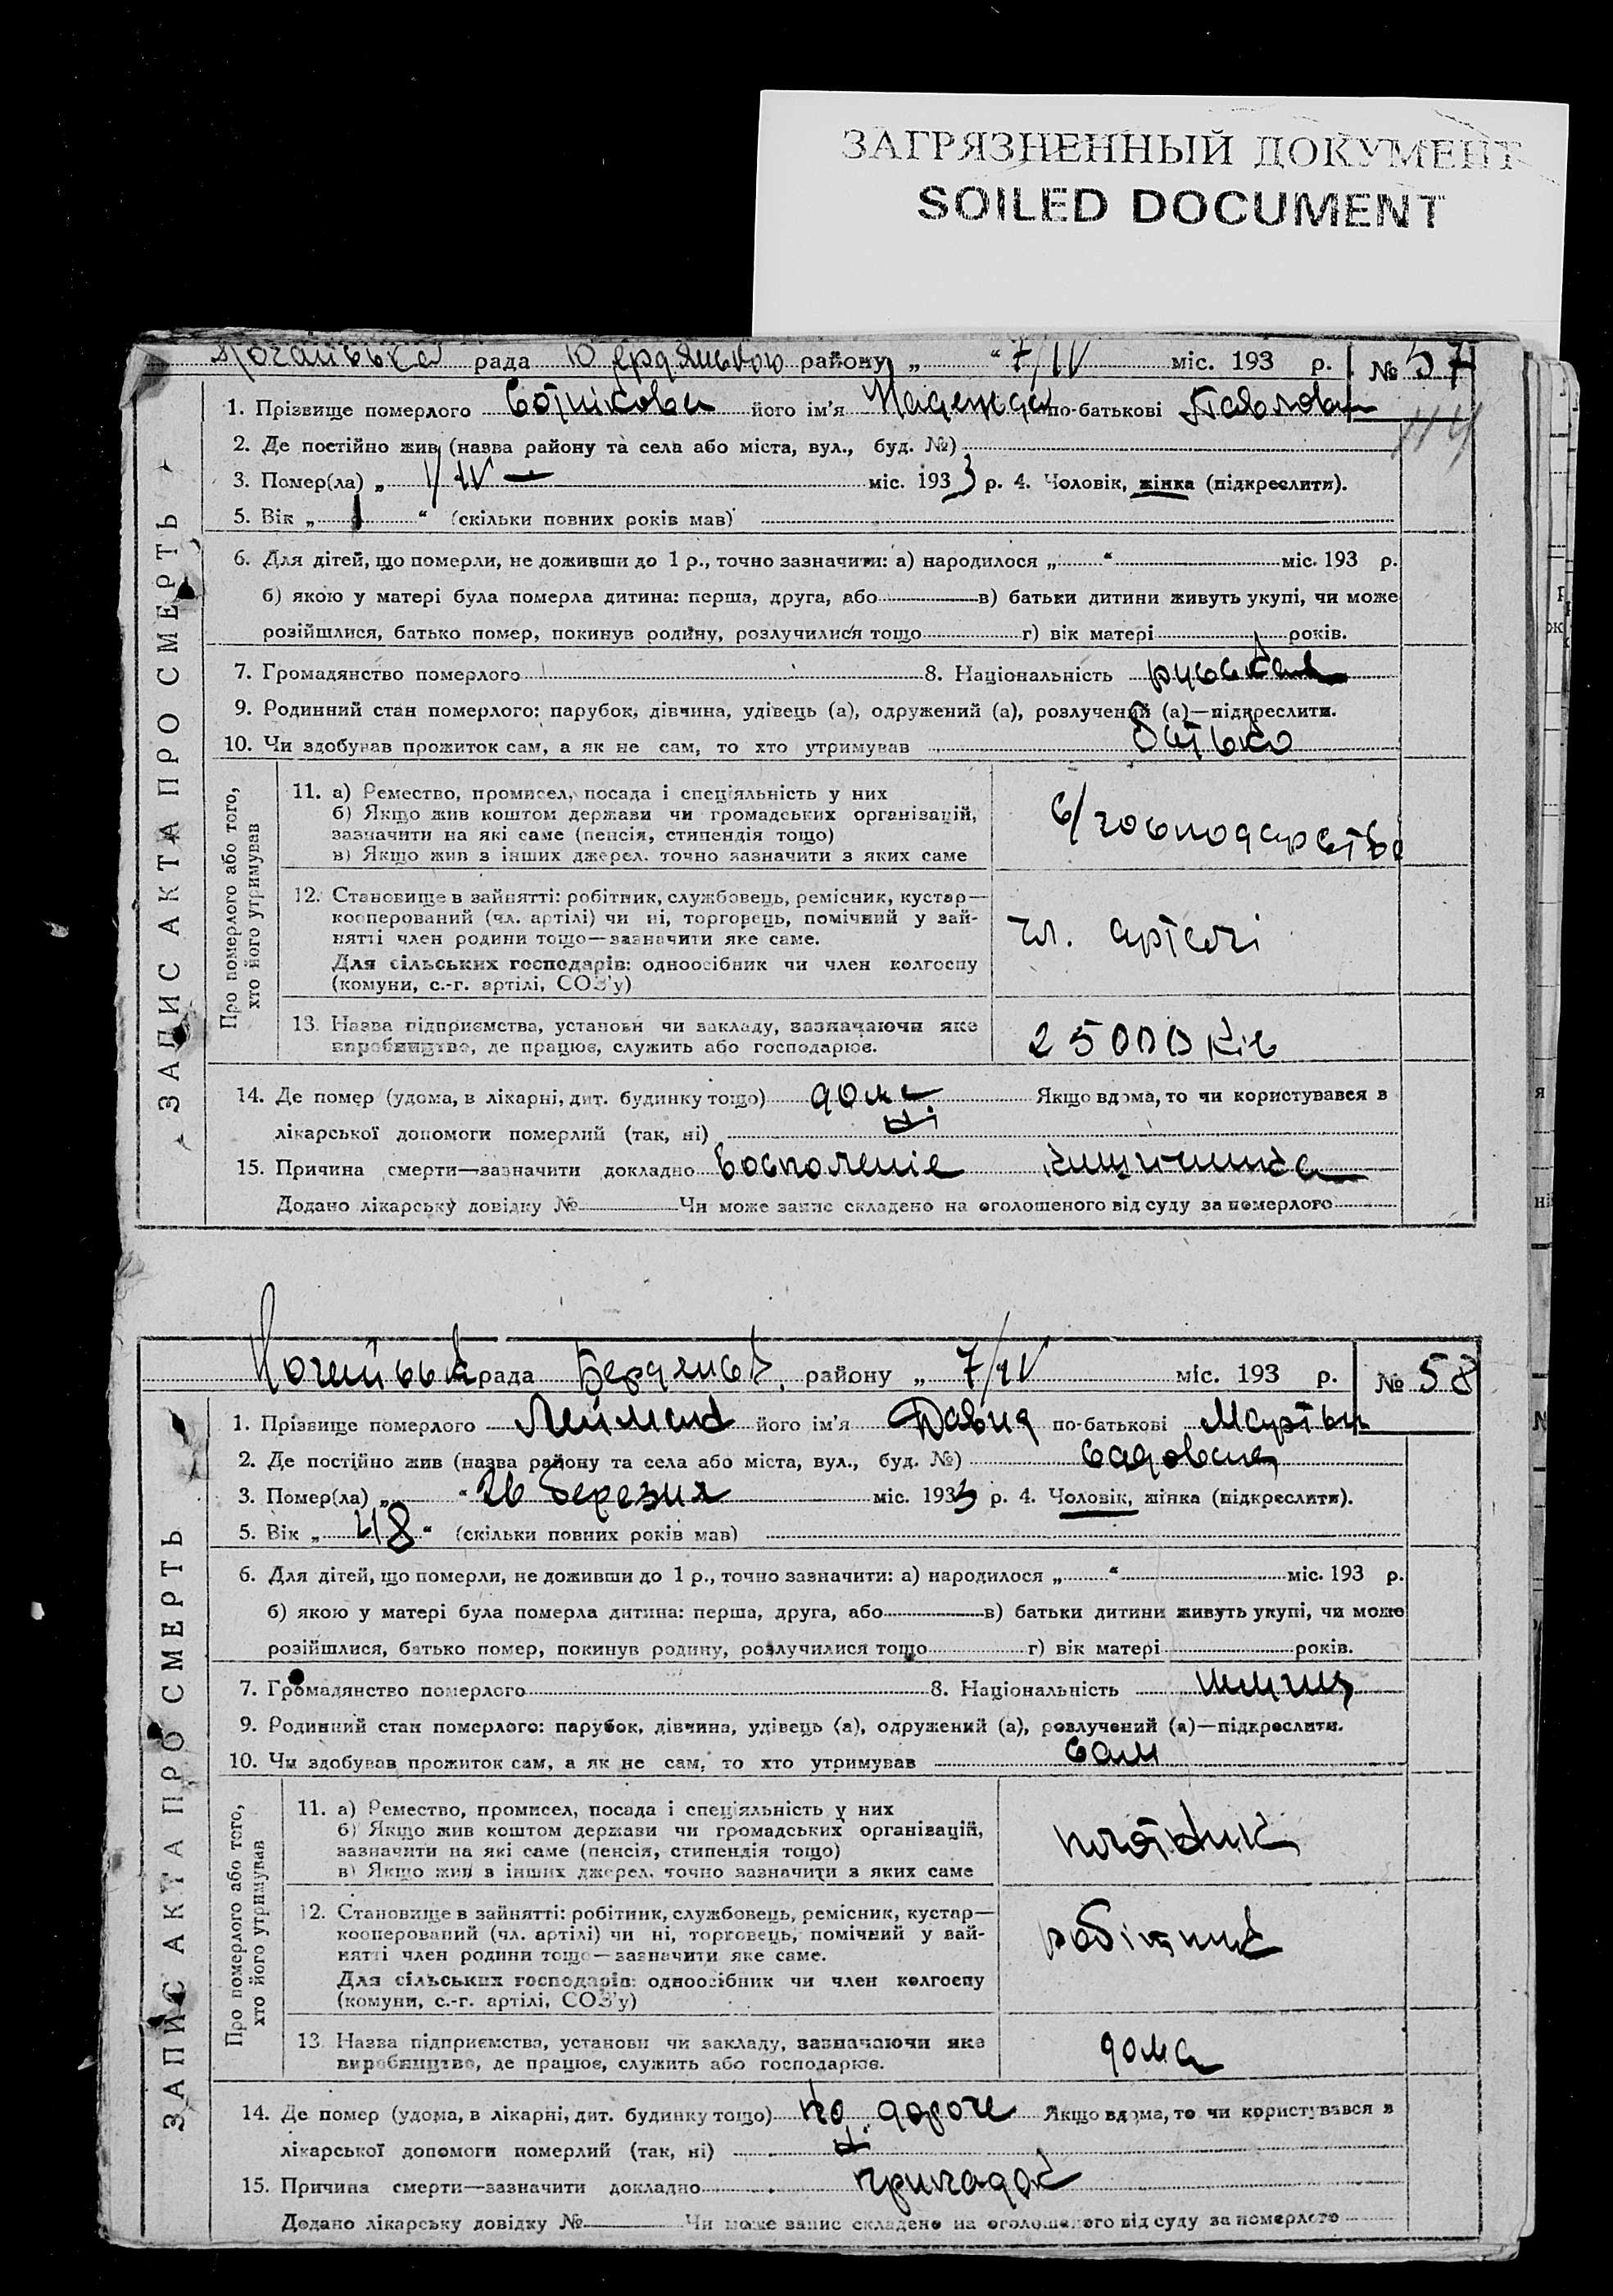 ЗАГРЯЗНЕННЫЙ ДОКУМЕНТ
SOILED DOCUMENT
рада районну „ “ 7/IV міс. 193 р. № 57
1. Прізвище померлого Сотнікова його ім'я Надежда по-батькові Павлов
114
2. Де постійно жив (назва району та села або міста, вул., буд. №)
3. Помер(ла) „ 1/IV — міс. 1933 р. 4. Чоловік, жінка (підкреслити).
5. Вік „ 1 “ (скільки повних років мав)
6. Для дітей, що померли, не доживши до 1 р., точно зазначити: а) народилося „ “ міс. 193 р.
б) якою у матері була померла дитина: перша, друга, або в) батьки дитини живуть укупі, чи може
розійшлися, батько помер, покинув родину, розлучилися тощо г) вік матері років.
7. Громадянство померлого 8. Національність руська
9. Родинний стан померлого: парубок, дівчина, удівець (а), одружений (а), розлучений (а)—підкреслити.
10. Чи здобував прожиток сам, а як не сам, то хто утримував батько
ЗАПИС АКТА ПРО СМЕРТЬ
Про померлого або того, хто його утримував
11. а) Ремество, промисел, посада і спеціяльність у них
б) Якщо жив коштом держави чи громадських організацій,
зазначити на які саме (пенсія, стипендія тощо)
в) Якщо жив з інших джерел. точно зазначити з яких саме
с/господарство
12. Становище в зайнятті: робітник, службовець, ремісник, кустар—
кооперований (чл. артілі) чи ні, торговець, помічний у зай-
нятті член родини тощо—зазначити яке саме.
Для сільських господарів: одноосібник чи член колгоспу
(комуни, с.-г. артілі, СОЗ'у)
чл. артелі
13. Назва підприємства, установи чи закладу, зазначаючи яке
виробництво, де працює, служить або господарює.
25000 ків
14. Де помер (удома, в лікарні, дит. будинку тощо) дома Якщо вдома, то чи користувався з
лікарської допомоги померлий (так, ні) ні
15. Причина смерти—зазначити докладно восполеніе
Додано лікарську довідку № Чи може запис складено на оголошеного від суду за померлого
рада Бердянськ. району „ 7/IV міс. 193 р. № 58
1. Прізвище померлого Лейман його ім'я Давид по-батькові Мартын
2. Де постійно жив (назва району та села або міста, вул., буд. №) садовая
3. Помер(ла) „ “ 26 березня міс. 1933 р. 4. Чоловік, жінка (підкреслити).
5. Вік „ 48 “ (скільки повних років мав)
6. Для дітей, що померли, не доживши до 1 р., точно зазначити: а) народилося „ “ міс. 193 р.
б) якою у матері була померла дитина: перша, друга, або в) батьки дитини живуть укупі, чи може
розійшлися, батько помер, покинув родину, розлучилися тощо г) вік матері років.
7. Громадянство померлого 8. Національність німець
9. Родинний стан померлого: парубок, дівчина, удівець (а), одружений (а), розлучений (а)—підкреслити.
10. Чи здобував прожиток сам, а як не сам, то хто утримував сам
ЗАПИС АКТА ПРО СМЕРТЬ
Про померлого або того, хто його утримував
11. а) Ремество, промисел, посада і спеціяльність у них
б) Якщо жив коштом держави чи громадських організацій,
зазначити на які саме (пенсія, стипендія тощо)
в) Якщо жив з інших джерел. точно зазначити з яких саме
плотнік
12. Становище в зайнятті: робітник, службовець, ремісник, кустар—
кооперований (чл. артілі) чи ні, торговець, помічний у зай-
нятті член родини тощо—зазначити яке саме.
Для сільських господарів: одноосібник чи член колгоспу
(комуни, с.-г. артілі, СОЗ'у)
робітник
13. Назва підприємства, установи чи закладу, зазначаючи яке
виробництво, де працює, служить або господарює.
дома
14. Де помер (удома, в лікарні, дит. будинку тощо) по дороге Якщо вдома, то чи користувався з
лікарської допомоги померлий (так, ні) ні
15. Причина смерти—зазначити докладно припадок
Додано лікарську довідку № Чи може запис складено на оголошеного від суду за померлого